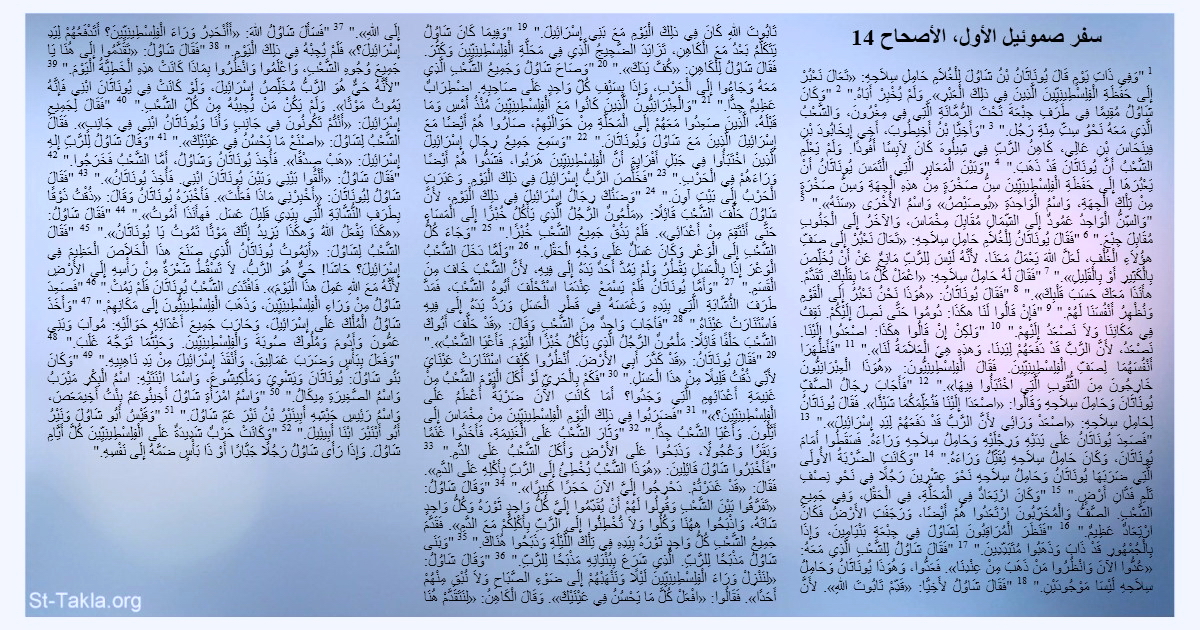 سفر صموئيل الأول، الأصحاح 14
1 "وَفِي ذَاتِ يَوْمٍ قَالَ يُونَاثَانُ بْنُ شَاوُلَ لِلْغُلاَمِ حَامِلِ سِلاَحِهِ: «تَعَالَ نَعْبُرْ
إِلَى حَفَظَةِ الْفِلِسْطِينِيِّينَ الَّذِينَ فِي ذلِكَ الْعَبْرِ». وَلَمْ يُخْبِرْ أَبَاهُ." 2 "وَكَانَ
شَاوُلُ مُقِيمًا فِي طَرَفِ جِبْعَةَ تَحْتَ الرُّمَّانَةِ الَّتِي فِي مِغْرُونَ، وَالشَّعْبُ
الَّذِي مَعَهُ نَحْوُ سِتِّ مِئَةِ رَجُل." 3 "وَأَخِيَّا بْنُ أَخِيطُوبَ، أَخِي إِيخَابُودَ بْنِ
فِينَحَاسَ بْنِ عَالِي، كَاهِنُ الرَّبِّ فِي شِيلُوهَ كَانَ لاَبِسًا أَفُودًا. وَلَمْ يَعْلَمِ
الشَّعْبُ أَنَّ يُونَاثَانَ قَدْ ذَهَبَ." 4 "وَبَيْنَ الْمَعَابِرِ الَّتِي الْتَمَسَ يُونَاثَانُ أَنْ
يَعْبُرَهَا إِلَى حَفَظَةِ الْفِلِسْطِينِيِّينَ سِنُّ صَخْرَةٍ مِنْ هذِهِ الْجِهَةِ وَسِنُّ صَخْرَةٍ
مِنْ تِلْكَ الْجِهَةِ، وَاسْمُ الْوَاحِدَةِ «بُوصَيْصُ» وَاسْمُ الأُخْرَى «سَنَهُ»." 5
"وَالسِّنُّ الْوَاحِدُ عَمُودٌ إِلَى الشِّمَالِ مُقَابِلَ مِخْمَاسَ، وَالآخَرُ إِلَى الْجَنُوبِ
مُقَابِلَ جِبْعَ." 6 "فَقَالَ يُونَاثَانُ لِلْغُلاَمِ حَامِلِ سِلاَحِهِ: «تَعَالَ نَعْبُرْ إِلَى صَفِّ
هؤُلاَءِ الْغُلْفِ، لَعَلَّ اللهَ يَعْمَلُ مَعَنَا، لأَنَّهُ لَيْسَ لِلرَّبِّ مَانِعٌ عَنْ أَنْ يُخَلِّصَ
بِالْكَثِيرِ أَوْ بِالْقَلِيلِ»." 7 "فَقَالَ لَهُ حَامِلُ سِلاَحِهِ: «اعْمَلْ كُلَّ مَا بِقَلْبِكَ. تَقَدَّمْ.
هأَنَذَا مَعَكَ حَسَبَ قَلْبِكَ»." 8 "فَقَالَ يُونَاثَانُ: «هُوَذَا نَحْنُ نَعْبُرُ إِلَى الْقَوْمِ
وَنُظْهِرُ أَنْفُسَنَا لَهُمْ." 9 "فَإِنْ قَالُوا لَنَا هكَذَا: دُومُوا حَتَّى نَصِلَ إِلَيْكُمْ. نَقِفُ
فِي مَكَانِنَا وَلاَ نَصْعَدُ إِلَيْهِمْ." 10 "وَلكِنْ إِنْ قَالُوا هكَذَا: اصْعَدُوا إِلَيْنَا.
نَصْعَدُ، لأَنَّ الرَّبَّ قَدْ دَفَعَهُمْ لِيَدِنَا، وَهذِهِ هِيَ الْعَلاَمَةُ لَنَا»." 11 "فَأَظْهَرَا
أَنْفُسَهُمَا لِصَفِّ الْفِلِسْطِينِيِّينَ. فَقَالَ الْفِلِسْطِينِيُّونَ: «هُوَذَا الْعِبْرَانِيُّونَ
خَارِجُونَ مِنَ الثُّقُوبِ الَّتِي اخْتَبَأُوا فِيهَا»." 12 "فَأَجَابَ رِجَالُ الصَّفِّ
يُونَاثَانَ وَحَامِلَ سِلاَحِهِ وَقَالُوا: «اصْعَدَا إِلَيْنَا فَنُعَلِّمَكُمَا شَيْئًا». فَقَالَ يُونَاثَانُ
لِحَامِلِ سِلاَحِهِ: «اصْعَدْ وَرَائِي لأَنَّ الرَّبَّ قَدْ دَفَعَهُمْ لِيَدِ إِسْرَائِيلَ»." 13
"فَصَعِدَ يُونَاثَانُ عَلَى يَدَيْهِ وَرِجْلَيْهِ وَحَامِلُ سِلاَحِهِ وَرَاءَهُ. فَسَقَطُوا أَمَامَ
يُونَاثَانَ، وَكَانَ حَامِلُ سِلاَحِهِ يُقَتِّلُ وَرَاءَهُ." 14 "وَكَانَتِ الضَّرْبَةُ الأُولَى
الَّتِي ضَرَبَهَا يُونَاثَانُ وَحَامِلُ سِلاَحِهِ نَحْوَ عِشْرِينَ رَجُلاً فِي نَحْوِ نِصْفِ
تَلَمِ فَدَّانِ أَرْضٍ." 15 "وَكَانَ ارْتِعَادٌ فِي الْمَحَلَّةِ، فِي الْحَقْلِ، وَفِي جَمِيعِ
الشَّعْبِ. الصَّفُّ وَالْمُخَرِّبُونَ ارْتَعَدُوا هُمْ أَيْضًا، وَرَجَفَتِ الأَرْضُ فَكَانَ
ارْتِعَادٌ عَظِيمٌ." 16 "فَنَظَرَ الْمُرَاقِبُونَ لِشَاوُلَ فِي جِبْعَةِ بَنْيَامِينَ، وَإِذَا
بِالْجُمْهُورِ قَدْ ذَابَ وَذَهَبُوا مُتَبَدِّدِينَ." 17 "فَقَالَ شَاوُلُ لِلشَّعْبِ الَّذِي مَعَهُ:
«عُدُّوا الآنَ وَانْظُرُوا مَنْ ذَهَبَ مِنْ عِنْدِنَا». فَعَدُّوا، وَهُوَذَا يُونَاثَانُ وَحَامِلُ
سِلاَحِهِ لَيْسَا مَوْجُودَيْنِ." 18 "فَقَالَ شَاوُلُ لأَخِيَّا: «قَدِّمْ تَابُوتَ اللهِ». لأَنَّ
تَابُوتَ اللهِ كَانَ فِي ذلِكَ الْيَوْمِ مَعَ بَنِي إِسْرَائِيلَ." 19 "وَفِيمَا كَانَ شَاوُلُ
يَتَكَلَّمُ بَعْدُ مَعَ الْكَاهِنِ، تَزَايَدَ الضَّجِيجُ الَّذِي فِي مَحَلَّةِ الْفِلِسْطِينِيِّينَ وَكَثُرَ.
فَقَالَ شَاوُلُ لِلْكَاهِنِ: «كُفَّ يَدَكَ»." 20 "وَصَاحَ شَاوُلُ وَجَمِيعُ الشَّعْبِ الَّذِي
مَعَهُ وَجَاءُوا إِلَى الْحَرْبِ، وَإِذَا بِسَيْفِ كُلِّ وَاحِدٍ عَلَى صَاحِبِهِ. اضْطِرَابٌ
عَظِيمٌ جِدًّا." 21 "وَالْعِبْرَانِيُّونَ الَّذِينَ كَانُوا مَعَ الْفِلِسْطِينِيِّينَ مُنْذُ أَمْسِ وَمَا
قَبْلَهُ، الَّذِينَ صَعِدُوا مَعَهُمْ إِلَى الْمَحَلَّةِ مِنْ حَوَالَيْهِمْ، صَارُوا هُمْ أَيْضًا مَعَ
إِسْرَائِيلَ الَّذِينَ مَعَ شَاوُلَ وَيُونَاثَانَ." 22 "وَسَمِعَ جَمِيعُ رِجَالِ إِسْرَائِيلَ
الَّذِينَ اخْتَبَأُوا فِي جَبَلِ أَفْرَايِمَ أَنَّ الْفِلِسْطِينِيِّينَ هَرَبُوا، فَشَدُّوا هُمْ أَيْضًا
وَرَاءَهُمْ فِي الْحَرْبِ." 23 "فَخَلَّصَ الرَّبُّ إِسْرَائِيلَ فِي ذلِكَ الْيَوْمِ. وَعَبَرَتِ
الْحَرْبُ إِلَى بَيْتِ آوِنَ." 24 "وَضَنُكَ رِجَالُ إِسْرَائِيلَ فِي ذلِكَ الْيَوْمِ، لأَنَّ
شَاوُلَ حَلَّفَ الشَّعْبَ قَائِلاً: «مَلْعُونٌ الرَّجُلُ الَّذِي يَأْكُلُ خُبْزًا إِلَى الْمَسَاءِ
حَتَّى أَنْتَقِمَ مِنْ أَعْدَائِي». فَلَمْ يَذُقْ جَمِيعُ الشَّعْبِ خُبْزًا." 25 "وَجَاءَ كُلُّ
الشَّعْبِ إِلَى الْوَعْرِ وَكَانَ عَسَلٌ عَلَى وَجْهِ الْحَقْلِ." 26 "وَلَمَّا دَخَلَ الشَّعْبُ
الْوَعْرَ إِذَا بِالْعَسَلِ يَقْطُرُ وَلَمْ يَمُدَّ أَحَدٌ يَدَهُ إِلَى فِيهِ، لأَنَّ الشَّعْبَ خَافَ مِنَ
الْقَسَمِ." 27 "وَأَمَّا يُونَاثَانُ فَلَمْ يَسْمَعْ عِنْدَمَا اسْتَحْلَفَ أَبُوهُ الشَّعْبَ، فَمَدَّ
طَرَفَ النُّشَّابَةِ الَّتِي بِيَدِهِ وَغَمَسَهُ فِي قَطْرِ الْعَسَلِ وَرَدَّ يَدَهُ إِلَى فِيهِ
فَاسْتَنَارَتْ عَيْنَاهُ." 28 "فَأَجَابَ وَاحِدٌ مِنَ الشَّعْبِ وَقَالَ: «قَدْ حَلَّفَ أَبُوكَ
الشَّعْبَ حَلْفًا قَائِلاً: مَلْعُونٌ الرَّجُلُ الَّذِي يَأْكُلُ خُبْزًا الْيَوْمَ. فَأَعْيَا الشَّعْبُ»."
29 "فَقَالَ يُونَاثَانُ: «قَدْ كَدَّرَ أَبِي الأَرْضَ. اُنْظُرُوا كَيْفَ اسْتَنَارَتْ عَيْنَايَ
لأَنِّي ذُقْتُ قَلِيلاً مِنْ هذَا الْعَسَلِ." 30 "فَكَمْ بِالْحَرِيِّ لَوْ أَكَلَ الْيَوْمَ الشَّعْبُ مِنْ
غَنِيمَةِ أَعْدَائِهِمِ الَّتِي وَجَدُوا؟ أَمَا كَانَتِ الآنَ ضَرْبَةٌ أَعْظَمُ عَلَى
الْفِلِسْطِينِيِّينَ؟»" 31 "فَضَرَبُوا فِي ذلِكَ الْيَوْمِ الْفِلِسْطِينِيِّينَ مِنْ مِخْمَاسَ إِلَى
أَيَّلُونَ. وَأَعْيَا الشَّعْبُ جِدًّا." 32 "وَثَارَ الشَّعْبُ عَلَى الْغَنِيمَةِ، فَأَخَذُوا غَنَمًا
وَبَقَرًا وَعُجُولاً، وَذَبَحُوا عَلَى الأَرْضِ وَأَكَلَ الشَّعْبُ عَلَى الدَّمِ." 33
"فَأَخْبَرُوا شَاوُلَ قَائِلِينَ: «هُوَذَا الشَّعْبُ يُخْطِئُ إِلَى الرَّبِّ بِأَكْلِهِ عَلَى الدَّمِ».
فَقَالَ: «قَدْ غَدَرْتُمْ. دَحْرِجُوا إِلَيَّ الآنَ حَجَرًا كَبِيرًا»." 34 "وَقَالَ شَاوُلُ:
«تَفَرَّقُوا بَيْنَ الشَّعْبِ وَقُولُوا لَهُمْ أَنْ يُقَدِّمُوا إِلَيَّ كُلُّ وَاحِدٍ ثَوْرَهُ وَكُلُّ وَاحِدٍ
شَاتَهُ، وَاذْبَحُوا ههُنَا وَكُلُوا وَلاَ تُخْطِئُوا إِلَى الرَّبِّ بِأَكْلِكُمْ مَعَ الدَّمِ». فَقَدَّمَ
جَمِيعُ الشَّعْبِ كُلُّ وَاحِدٍ ثَوْرَهُ بِيَدِهِ فِي تِلْكَ اللَّيْلَةِ وَذَبَحُوا هُنَاكَ." 35 "وَبَنَى
شَاوُلُ مَذْبَحًا لِلرَّبِّ. الَّذِي شَرَعَ بِبُنْيَانِهِ مَذْبَحًا لِلرَّبِّ." 36 "وَقَالَ شَاوُلُ:
«لِنَنْزِلْ وَرَاءَ الْفِلِسْطِينِيِّينَ لَيْلاً وَنَنْهَبْهُمْ إِلَى ضَوْءِ الصَّبَاحِ وَلاَ نُبْقِ مِنْهُمْ
أَحَدًا». فَقَالُوا: «افْعَلْ كُلَّ مَا يَحْسُنُ فِي عَيْنَيْكَ». وَقَالَ الْكَاهِنُ: «لِنَتَقَدَّمْ هُنَا
إِلَى اللهِ»." 37 "فَسَأَلَ شَاوُلُ اللهَ: «أَأَنْحَدِرُ وَرَاءَ الْفِلِسْطِينِيِّينَ؟ أَتَدْفَعُهُمْ لِيَدِ
إِسْرَائِيلَ؟». فَلَمْ يُجِبْهُ فِي ذلِكَ الْيَوْمِ." 38 "فَقَالَ شَاوُلُ: «تَقَدَّمُوا إِلَى هُنَا يَا
جَمِيعَ وُجُوهِ الشَّعْبِ، وَاعْلَمُوا وَانْظُرُوا بِمَاذَا كَانَتْ هذِهِ الْخَطِيَّةُ الْيَوْمَ." 39
"لأَنَّهُ حَيٌّ هُوَ الرَّبُّ مُخَلِّصُ إِسْرَائِيلَ، وَلَوْ كَانَتْ فِي يُونَاثَانَ ابْنِي فَإِنَّهُ
يَمُوتُ مَوْتًا». وَلَمْ يَكُنْ مَنْ يُجِيبُهُ مِنْ كُلِّ الشَّعْبِ." 40 "فَقَالَ لِجَمِيعِ
إِسْرَائِيلَ: «أَنْتُمْ تَكُونُونَ فِي جَانِبٍ وَأَنَا وَيُونَاثَانُ ابْنِي فِي جَانِبٍ». فَقَالَ
الشَّعْبُ لِشَاوُلَ: «اصْنَعْ مَا يَحْسُنُ فِي عَيْنَيْكَ»." 41 "وَقَالَ شَاوُلُ لِلرَّبِّ إِلهِ
إِسْرَائِيلَ: «هَبْ صِدْقًا». فَأُخِذَ يُونَاثَانُ وَشَاوُلُ، أَمَّا الشَّعْبُ فَخَرَجُوا." 42
"فَقَالَ شَاوُلُ: «أَلْقُوا بَيْنِي وَبَيْنَ يُونَاثَانَ ابْنِي. فَأُخِذَ يُونَاثَانُ»." 43 "فَقَالَ
شَاوُلُ لِيُونَاثَانَ: «أَخْبِرْنِي مَاذَا فَعَلْتَ». فَأَخْبَرَهُ يُونَاثَانُ وَقَالَ: «ذُقْتُ ذَوْقًا
بِطَرَفِ النُّشَّابَةِ الَّتِي بِيَدِي قَلِيلَ عَسَل. فَهأَنَذَا أَمُوتُ»." 44 "فَقَالَ شَاوُلُ:
«هكَذَا يَفْعَلُ اللهُ وَهكَذَا يَزِيدُ إِنَّكَ مَوْتًا تَمُوتُ يَا يُونَاثَانُ»." 45 "فَقَالَ
الشَّعْبُ لِشَاوُلَ: «أَيَمُوتُ يُونَاثَانُ الَّذِي صَنَعَ هذَا الْخَلاَصَ الْعَظِيمَ فِي
إِسْرَائِيلَ؟ حَاشَا! حَيٌّ هُوَ الرَّبُّ، لاَ تَسْقُطُ شَعْرَةٌ مِنْ رَأْسِهِ إِلَى الأَرْضِ
لأَنَّهُ مَعَ اللهِ عَمِلَ هذَا الْيَوْمَ». فَافْتَدَى الشَّعْبُ يُونَاثَانَ فَلَمْ يَمُتْ" 46 "فَصَعِدَ
شَاوُلُ مِنْ وَرَاءِ الْفِلِسْطِينِيِّينَ، وَذَهَبَ الْفِلِسْطِينِيُّونَ إِلَى مَكَانِهِمْ." 47 "وَأَخَذَ
شَاوُلُ الْمُلْكَ عَلَى إِسْرَائِيلَ، وَحَارَبَ جَمِيعَ أَعْدَائِهِ حَوَالَيْهِ: مُوآبَ وَبَنِي
عَمُّونَ وَأَدُومَ وَمُلُوكَ صُوبَةَ وَالْفِلِسْطِينِيِّينَ. وَحَيْثُمَا تَوَجَّهَ غَلَبَ." 48
"وَفَعَلَ بِبَأْسٍ وَضَرَبَ عَمَالِيقَ، وَأَنْقَذَ إِسْرَائِيلَ مِنْ يَدِ نَاهِبِيهِ." 49 "وَكَانَ
بَنُو شَاوُلَ: يُونَاثَانَ وَيَشْوِيَ وَمَلْكِيشُوعَ، وَاسْمَا ابْنَتَيْهِ: اسْمُ الْبِكْرِ مَيْرَبُ
وَاسْمُ الصَّغِيرَةِ مِيكَالُ." 50 "وَاسْمُ امْرَأَةِ شَاوُلَ أَخِينُوعَمُ بِنْتُ أَخِيمَعَصَ،
وَاسْمُ رَئِيسِ جَيْشِهِ أَبِينَيْرُ بْنُ نَيْرَ عَمِّ شَاوُلَ." 51 "وَقَيْسُ أَبُو شَاوُلَ وَنَيْرُ
أَبُو أَبْنَيْرَ ابْنَا أَبِيئِيلَ." 52 "وَكَانَتْ حَرْبٌ شَدِيدَةٌ عَلَى الْفِلِسْطِينِيِّينَ كُلَّ أَيَّامِ
شَاوُلَ. وَإِذَا رَأَى شَاوُلُ رَجُلاً جَبَّارًا أَوْ ذَا بَأْسٍ ضَمَّهُ إِلَى نَفْسِهِ."
St-Takla.org